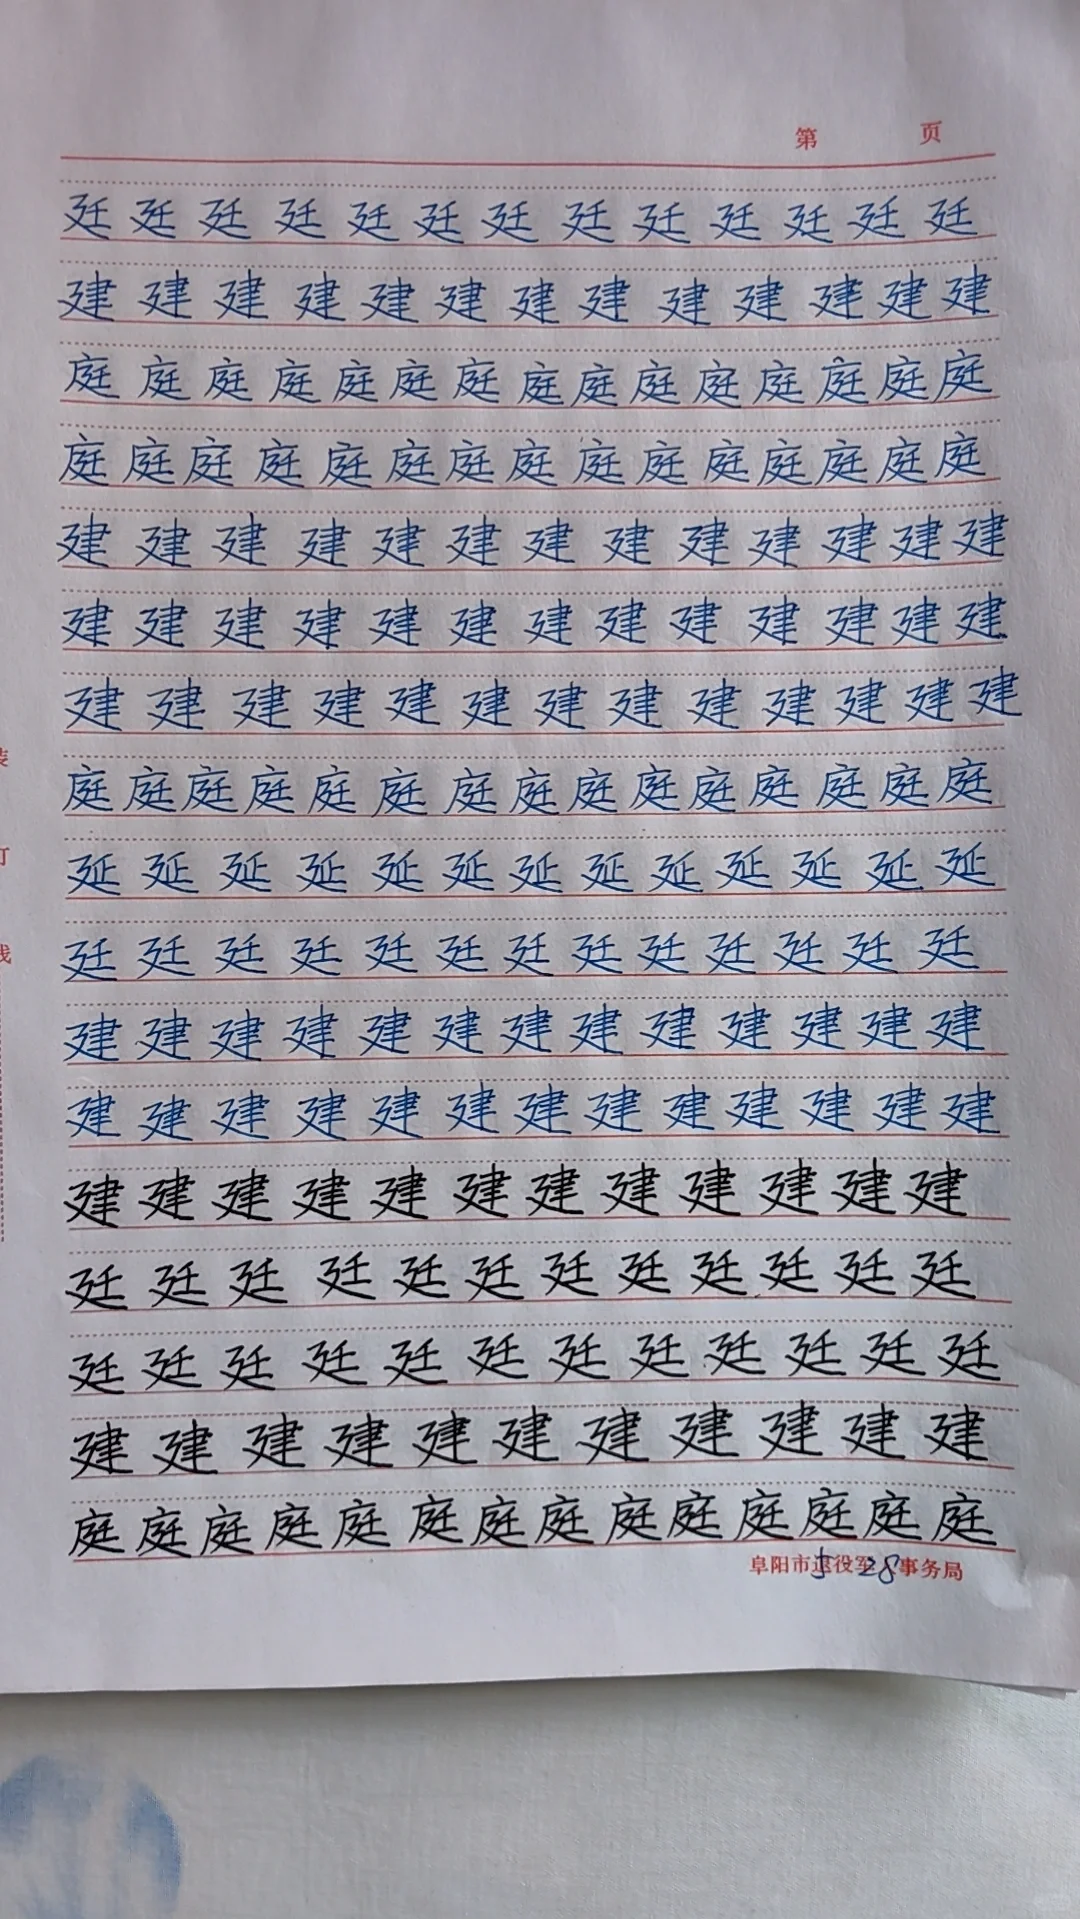 第 页
廷 廷 廷 廷 廷 廷 廷 廷 廷 廷 廷 廷 廷
建 建 建 建 建 建 建 建 建 建 建 建 建
庭 庭 庭 庭 庭 庭 庭 庭 庭 庭 庭 庭 庭 庭 庭
庭 庭 庭 庭 庭 庭 庭 庭 庭 庭 庭 庭 庭 庭 庭
建 建 建 建 建 建 建 建 建 建 建 建 建
建 建 建 建 建 建 建 建 建 建 建 建 建
建 建 建 建 建 建 建 建 建 建 建 建 建
庭 庭 庭 庭 庭 庭 庭 庭 庭 庭 庭 庭 庭 庭 庭
延 延 延 延 延 延 延 延 延 延 延 延 延
廷 廷 廷 廷 廷 廷 廷 廷 廷 廷 廷 廷 廷
建 建 建 建 建 建 建 建 建 建 建 建 建
建 建 建 建 建 建 建 建 建 建 建 建 建
建 建 建 建 建 建 建 建 建 建 建 建
廷 廷 廷 廷 廷 廷 廷 廷 廷 廷 廷 廷
廷 廷 廷 廷 廷 廷 廷 廷 廷 廷 廷 廷
建 建 建 建 建 建 建 建 建 建 建
庭 庭 庭 庭 庭 庭 庭 庭 庭 庭 庭 庭 庭 庭
阜阳市退役军人事务局
5 28
订